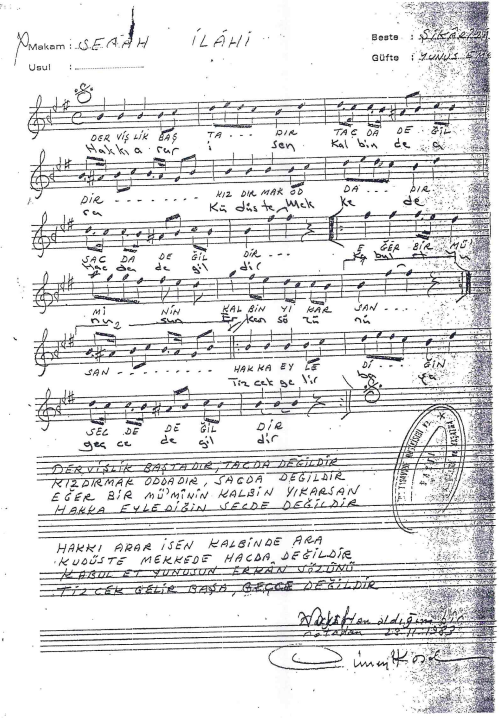 Makam : SEGÂH İLÂHİ
Beste :
Usul : ....................
Güfte : YUNUS
DER VİŞ LİK BAŞ TA - - - DIR TAÇ DA DE - ĞİL
Hakkı a rar i sen Kal bin de a
DİR - - - - - - - - KIZ DIR MAK OD DA - - - DIR
ra Kü düs te Mek ke de
SAC DA DE ĞİL DİR - - - - E ĞER BİR MÜ
hac da de gil dir Ka bul et Yu
Mİ - - - NİN KAL BİN YI KAR SAN - - -
nu sun Er kan sö zü nü
SAN - - - - - - - - HAKKA EY LE Dİ - - ĞİN
Tiz cek ge lir ba şa
SEC DE DE ĞİL DİR
geç ce de gil dir
DERVİŞLİK BAŞTADIR, TACDA DEĞİLDİR
KIZDIRMAK ODDADIR, SACDA DEĞİLDİR
EĞER BİR MÜ'MİNİN KALBİN YIKARSAN
HAKKA EYLEDİĞİN SECDE DEĞİLDİR
HAKKI ARAR İSEN KALBİNDE ARA
KUDÜSTE MEKKEDE HACDA DEĞİLDİR
KABUL ET YUNUSUN ERKÂN SÖZÜNÜ
TİZCEK GELİR BAŞA, GEÇCE DEĞİLDİR
aldığım bir
notadan